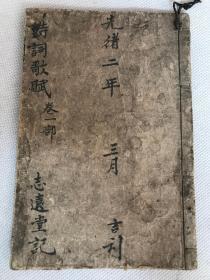 光緒二年 三月 吉利
詩詞歌賦 卷一部
志遠堂記